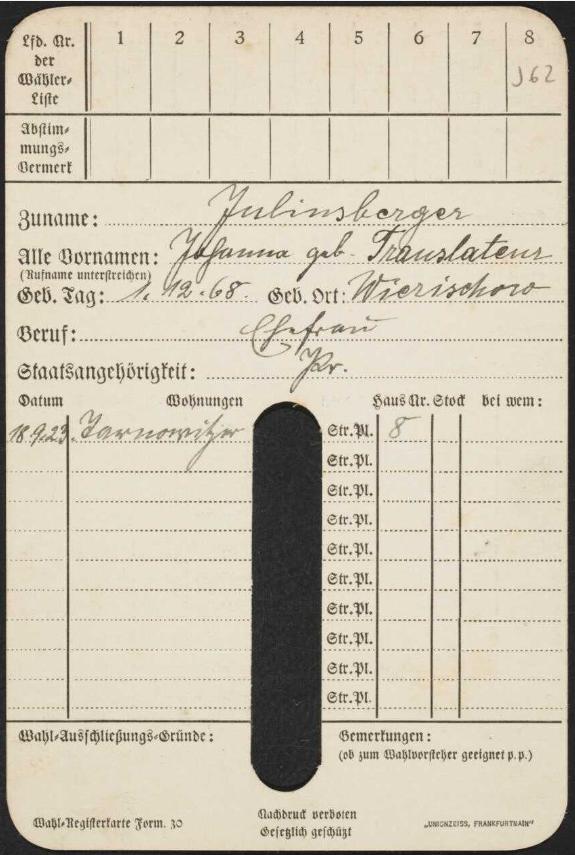 Lfd. Nr. der Wähler-Liste 1 2 3 4 5 6 7 8
J62
Abstimmungs-Vermerk
Zuname: Juliusberger
Alle Vornamen: Johanna geb. Translateur
(Rufname unterstreichen)
Geb. Tag: 1. 12. 68. Geb. Ort: Wierischow
Beruf: Ehefrau
Staatsangehörigkeit: Pr.
Datum Wohnungen Haus Nr. Stock bei wem:
18.9.23. Tarnowitzer Str.Pl. 8
Str.Pl.
Str.Pl.
Str.Pl.
Str.Pl.
Str.Pl.
Str.Pl.
Str.Pl.
Str.Pl.
Str.Pl.
Wahl-Ausschließungs-Gründe: Bemerkungen:
(ob zum Wahlvorsteher geeignet p.p.)
Wahl-Registerkarte Form. 30 Nachdruck verboten „UNIONZEISS, FRANKFURTMAIN“
Gesetzlich geschützt